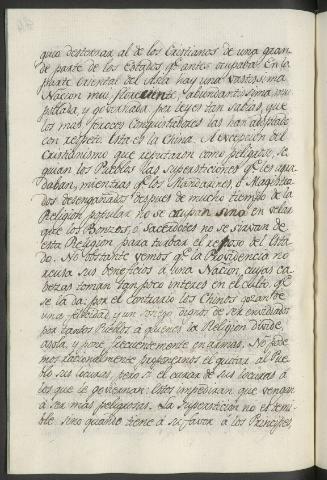 guió desterrar al de los Cristianos de una gran-
de parte de los estados qe. antes ocupaba. En la
parte Oriental del Asia hay una vastissima
Nacion mui floreciente, abundantissima, mui
poblada, y governada por leyes tan sabias, que
los mas feroces Conquistadores las han adoptado
con respeto. Esta es la China. A excepcion del
Cristianismo que reputaron como peligroso, se-
guian los Pueblos las supersticiones qe. les agra-
daban, mientras qe. los Mandarines, ó Magistra-
dos desengañados despues de mucho tiempo de la
Religion popular no se ocupan sino en velar
que los Bonzos, ó Sacerdotes no se sirvan de
esta Religion para turbar el reposo del Esta-
do. No obstante vemos qe. la Providencia no
recusa sus beneficios á una Nacion, cuyas ca-
bezas toman tan poco interes en el culto qe.
se la dá: por el contrario los Chinos gozan de
una felicidad, y un sosiego dignos de ser envidiados
por tantos Pueblos á quienes la Religion divide,
asola, y pone frecuentemente en armas. No pode-
mos racionalmente proponernos el quitar al Pue-
blo sus locuras, pero sí el curar de sus locuras á
los que le goviernan: Estos impedirán que vengan
á ser mas peligrosas. La supersticion no es temi-
ble sino quando tiene á su favor á los Principes,